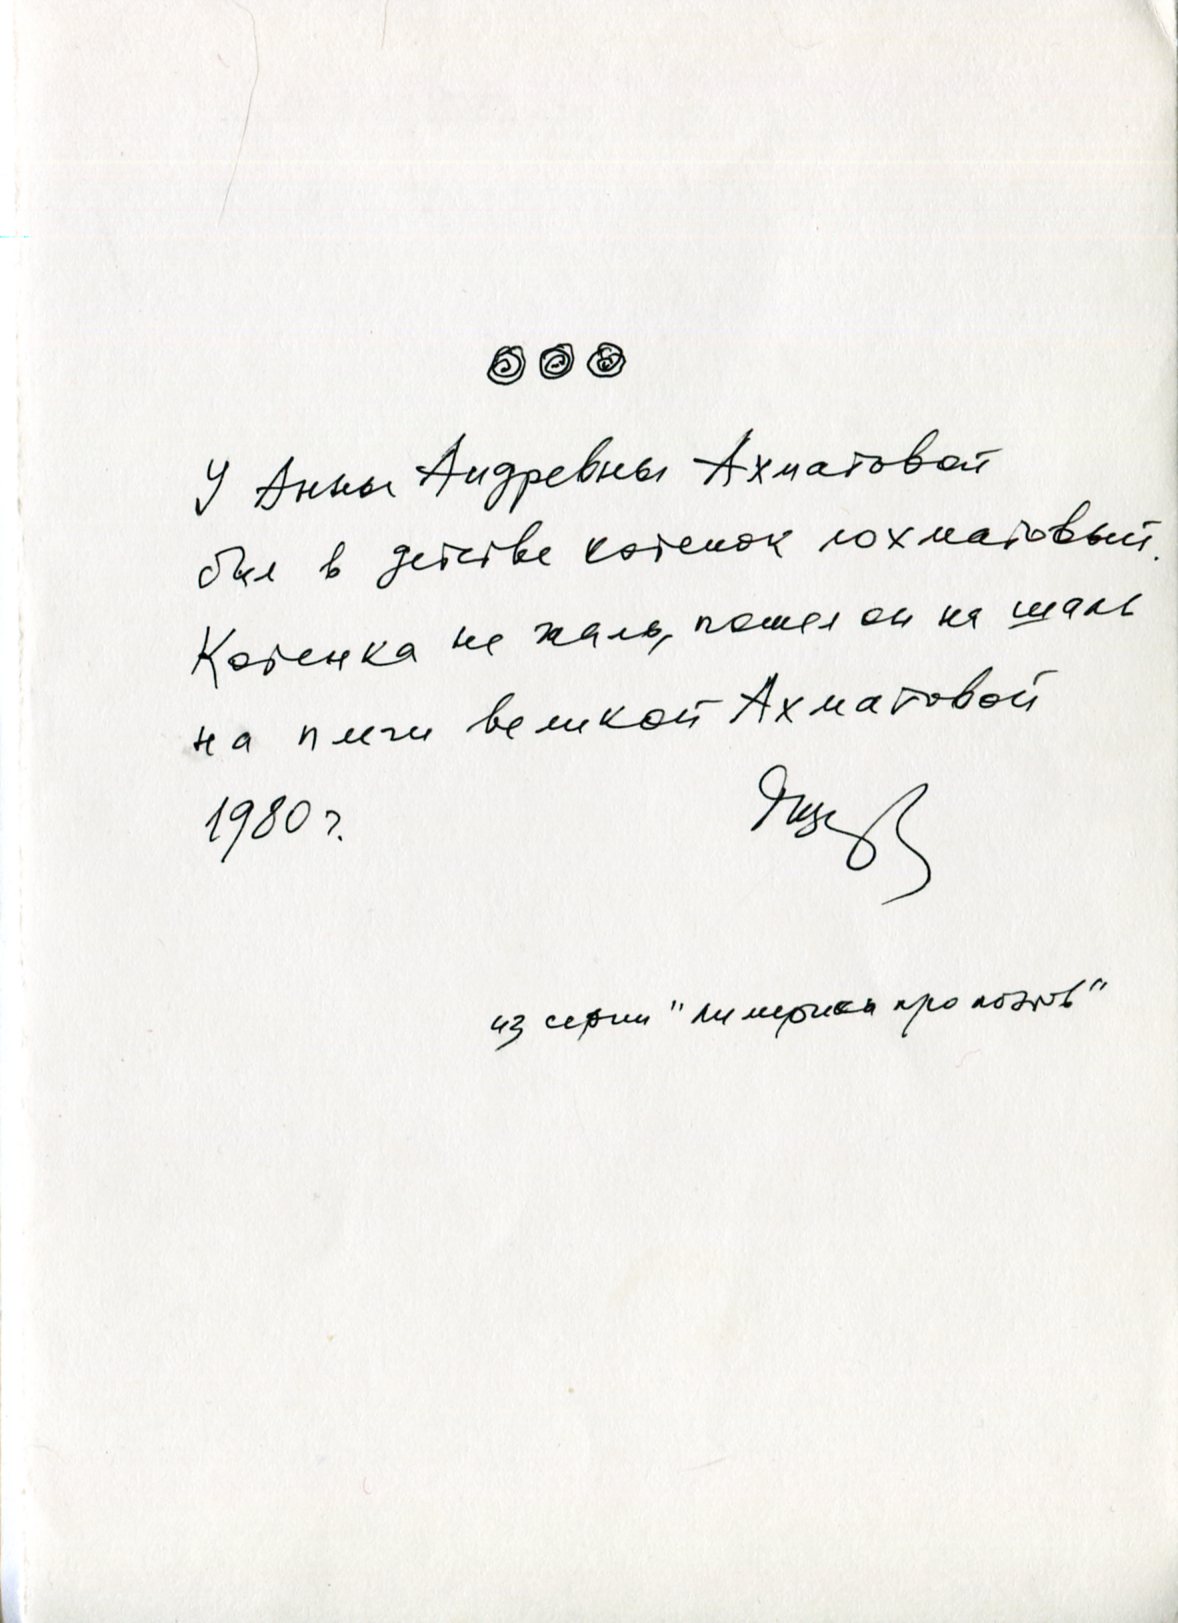 У Анны Андревны Ахматовой
был в детстве котенок лохматовый.
Котенка не жаль, пошел он на шаль
на плечи великой Ахматовой
1980 г.
из серии "Лимерики про поэтов"